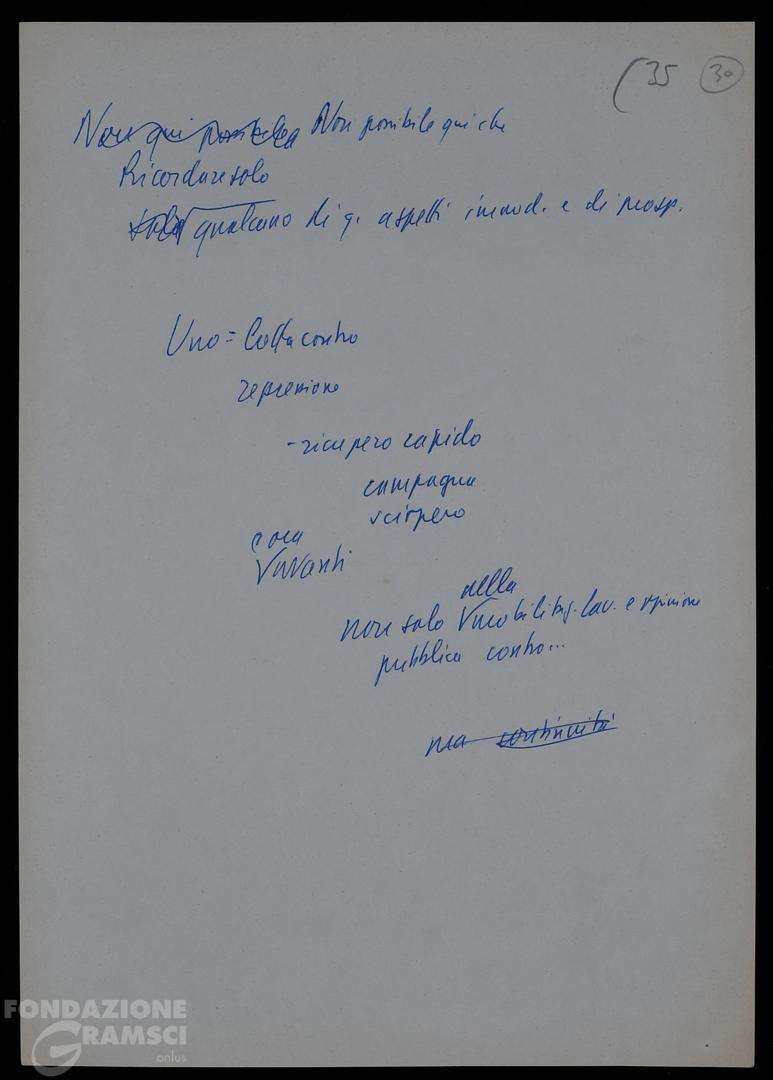 (35 30
Non qui possibile Non possibile qui che
Ricordare solo
solo qualcuno di q. aspetti immed. e di prosp.
Uno = Lotta contro
repressione
- ricupero rapido
campagna
sciopero
e ora
avanti
nella
non solo mobilitaz. lav. e opinione
pubblica contro...
ma continuità
FONDAZIONE
GRAMSCI
onlus